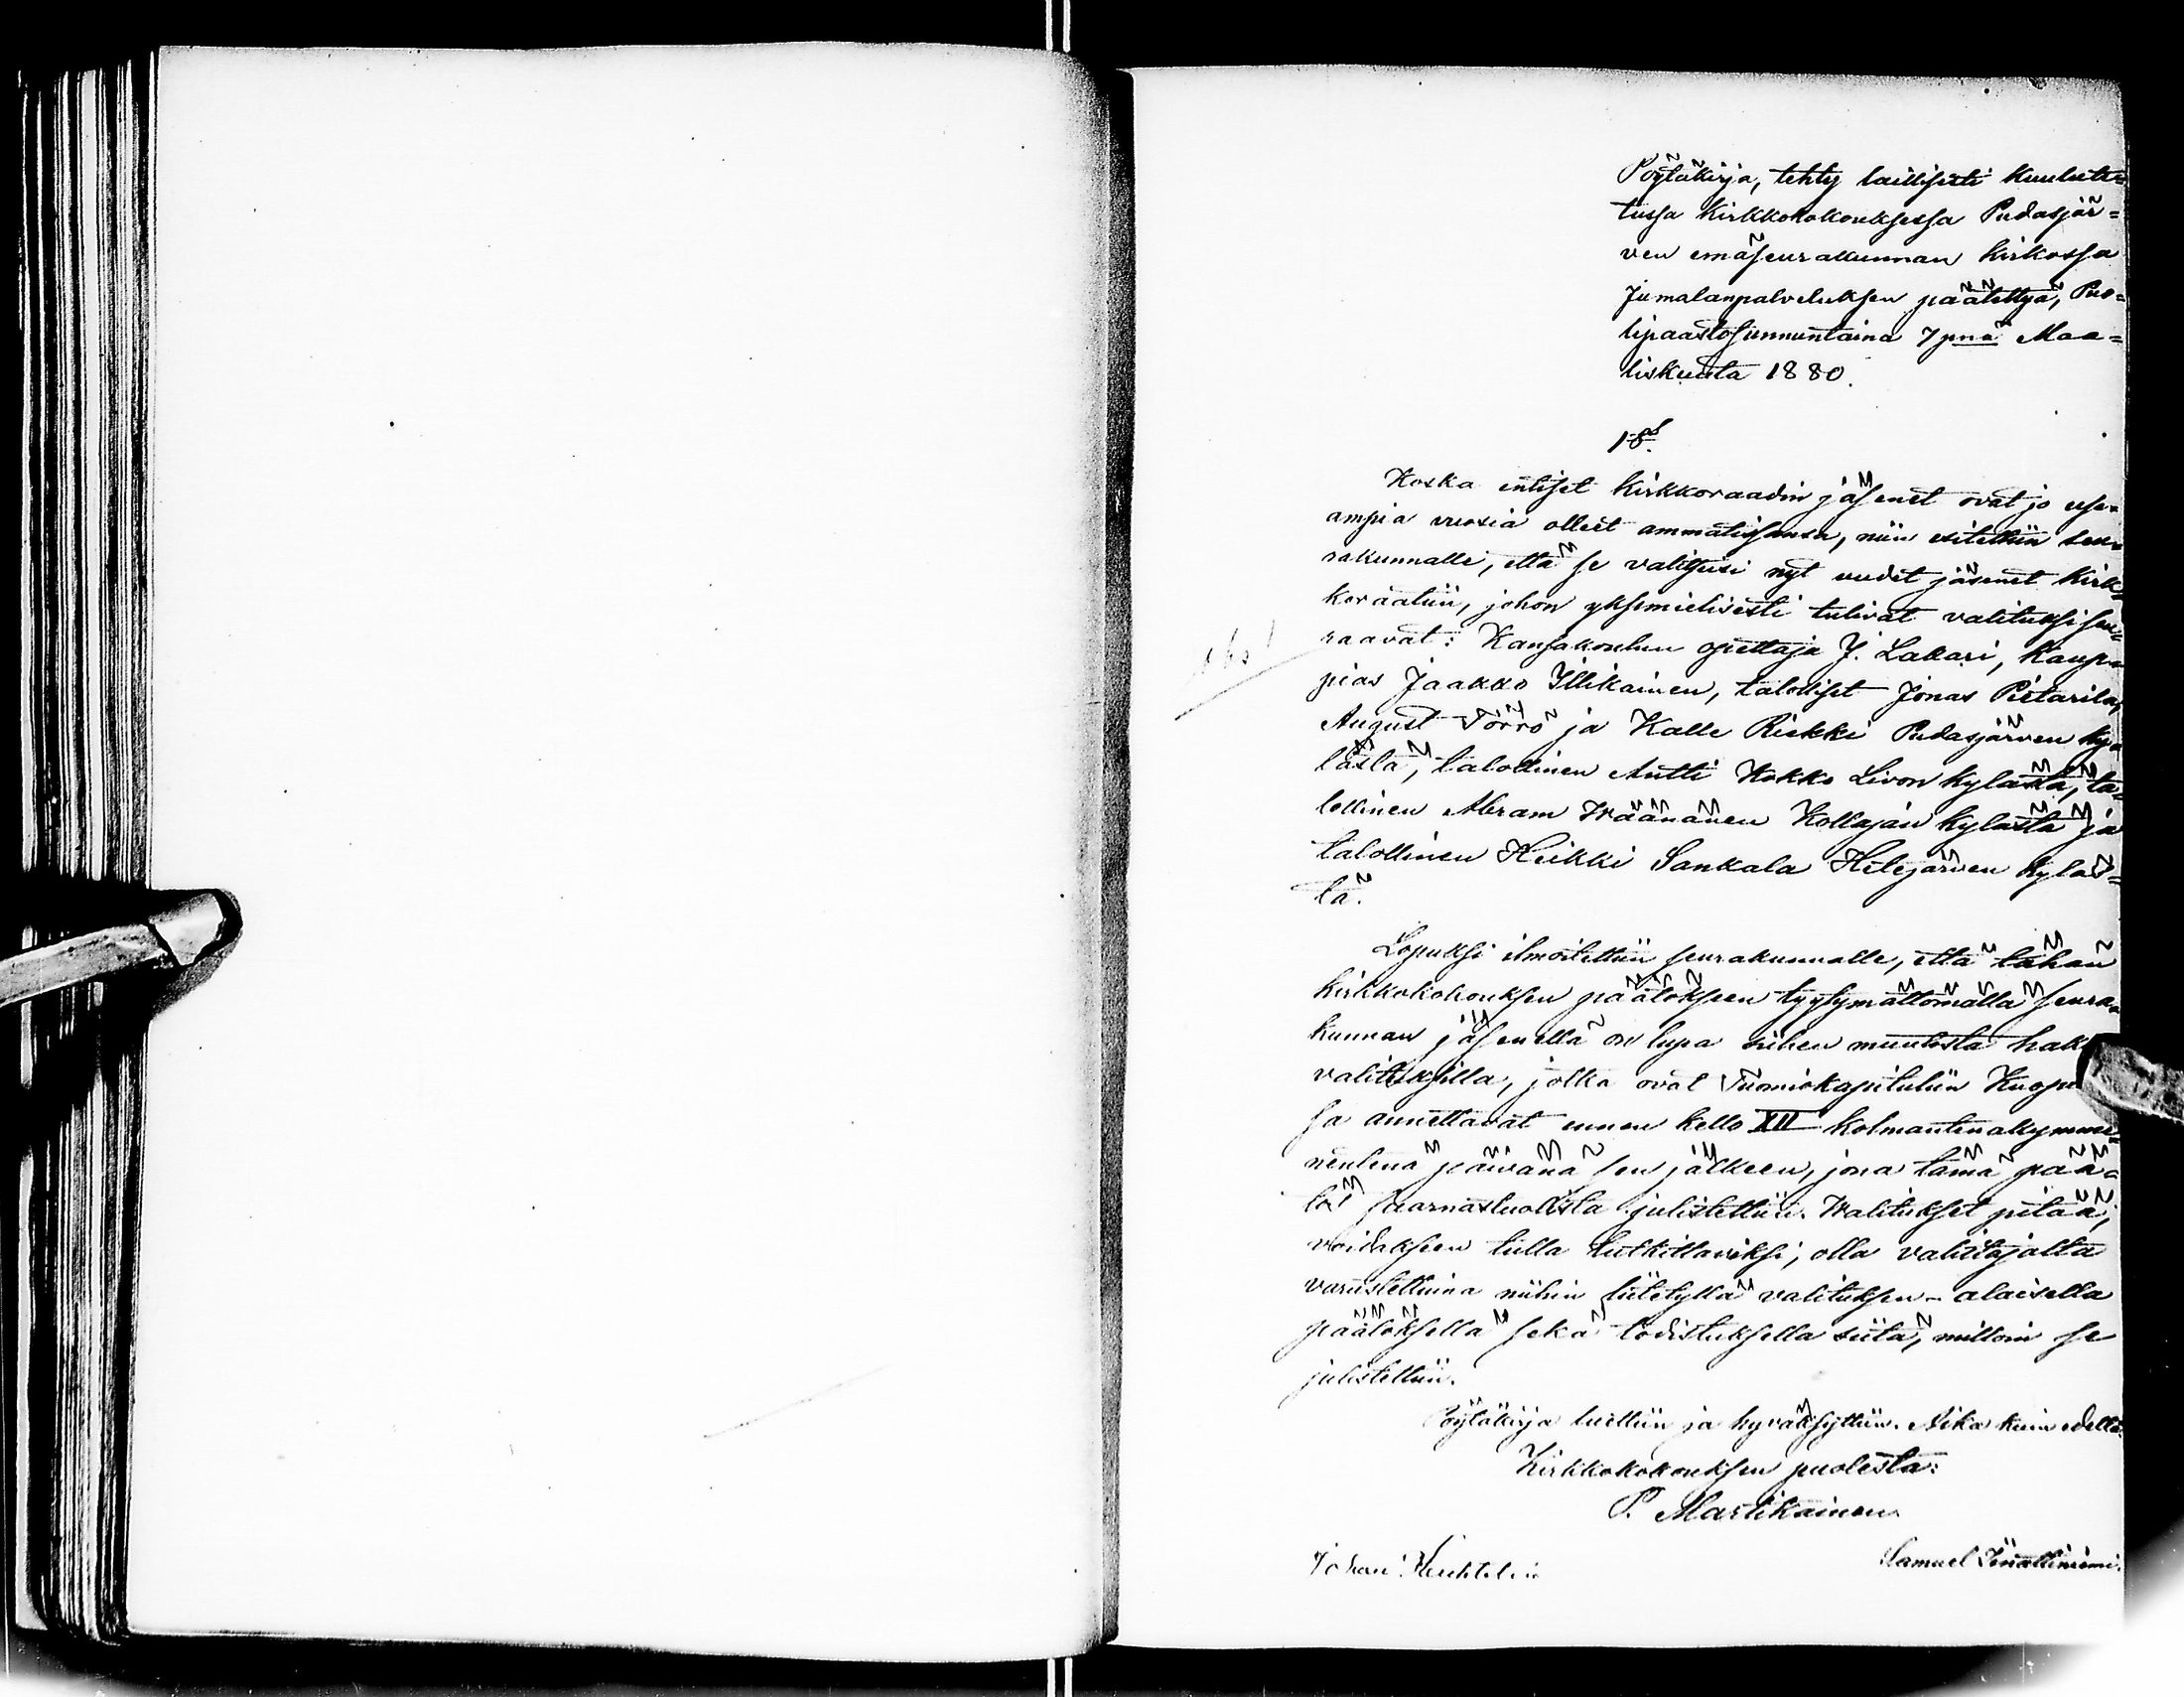 Pöytäkirja, tehty laillisesti kuulute-
tussa Kirkkokokouksessa Pudasjär-
ven emäseurakunnan kirkossa
Jumalanpalveluksen päätettyä, Puo-
lipaastosunnuntaina 7 pnä Maa-
liskuuta 1880.
1 §.
Koska entiset kirkkoraadin jäsenet ovat jo use-
ampia vuosia olleet ammatissansa, niin esitettiin seu-
rakunnalle, että se valitsisi nyt uudet jäsenet Kirk-
koraatiin, johon yksimielisesti tulivat valituksi seu-
raavat: Kansakoulun opettaja J. Lakari, Kaup-
obs!
pias Jaakko Illikainen, talolliset Jonas Pietarila,
August Törrö ja Kalle Riekki Pudasjärven ky-
lästä, talollinen Antti Kokko Livon kylästä, ta-
lollinen Abram Wäänänen Kollajan kylästä ja
talollinen Heikki Sankala Hetejärven kyläs-
tä.
Lopuksi ilmoitettiin seurakunnalle, että tähän
kirkkokokouksen päätökseen tyytymättömällä seura-
kunnan jäsenellä on lupa siihen muutosta hak
valituksilla, jotka ovat Tuomiokapituliin Kuopi
sa annettavat ennen kello XII kolmantenakymme-
nentenä päivänä sen jälkeen, jona tämä pää-
tös saarnastuolista julistettiin. Walitukset pitää,
voidakseen tulla tutkittaviksi, olla valittajalta
varustettuina niihin liitetyllä valituksen-alaisella
päätöksellä sekä todistuksella siitä, milloin se
julistettiin.
Pöytäkirja luettiin ja hyväksyttiin. Aika kuin edellä.
Kirkkokokouksen puolesta:
P. Martikainen
Johan
Samuel